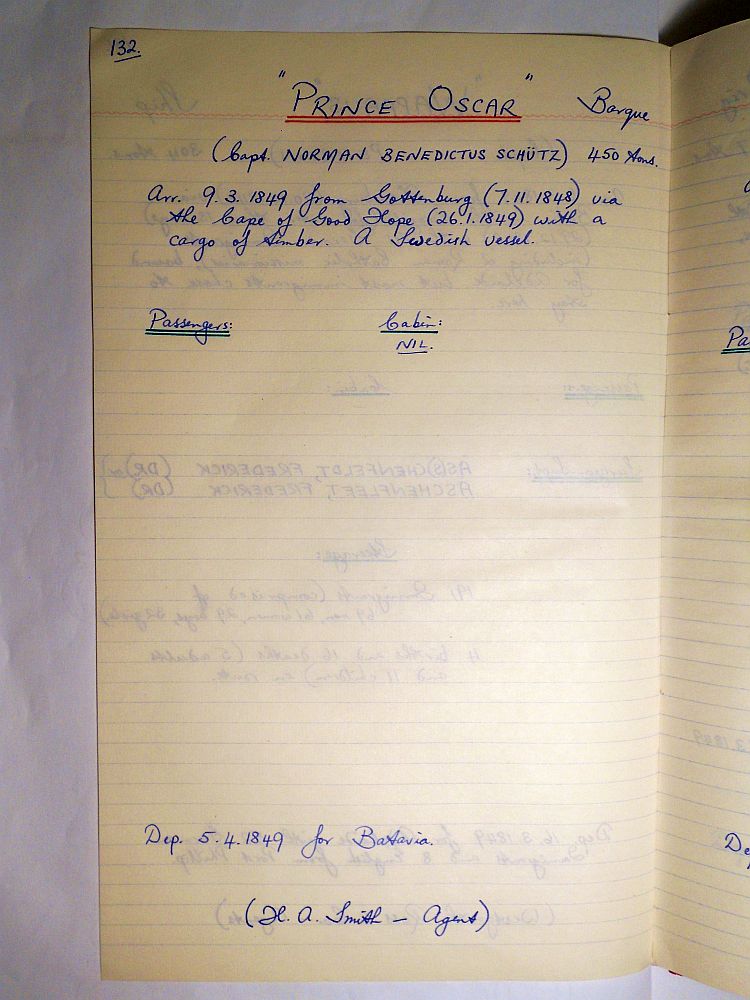 132.
"PRINCE OSCAR" Barque
(Capt. NORMAN BENEDICTUS SCHÜTZ) 450 tons.
Arr. 9.3.1849 from Gottenburg (7.11.1848) via
the Cape of Good Hope (26.1.1849) with a
cargo of timber. A Swedish vessel.
Passengers: Cabin:
NIL.
Pa
Dep. 5.4.1849 for Batavia.
De
(H. A. Smith - Agent)